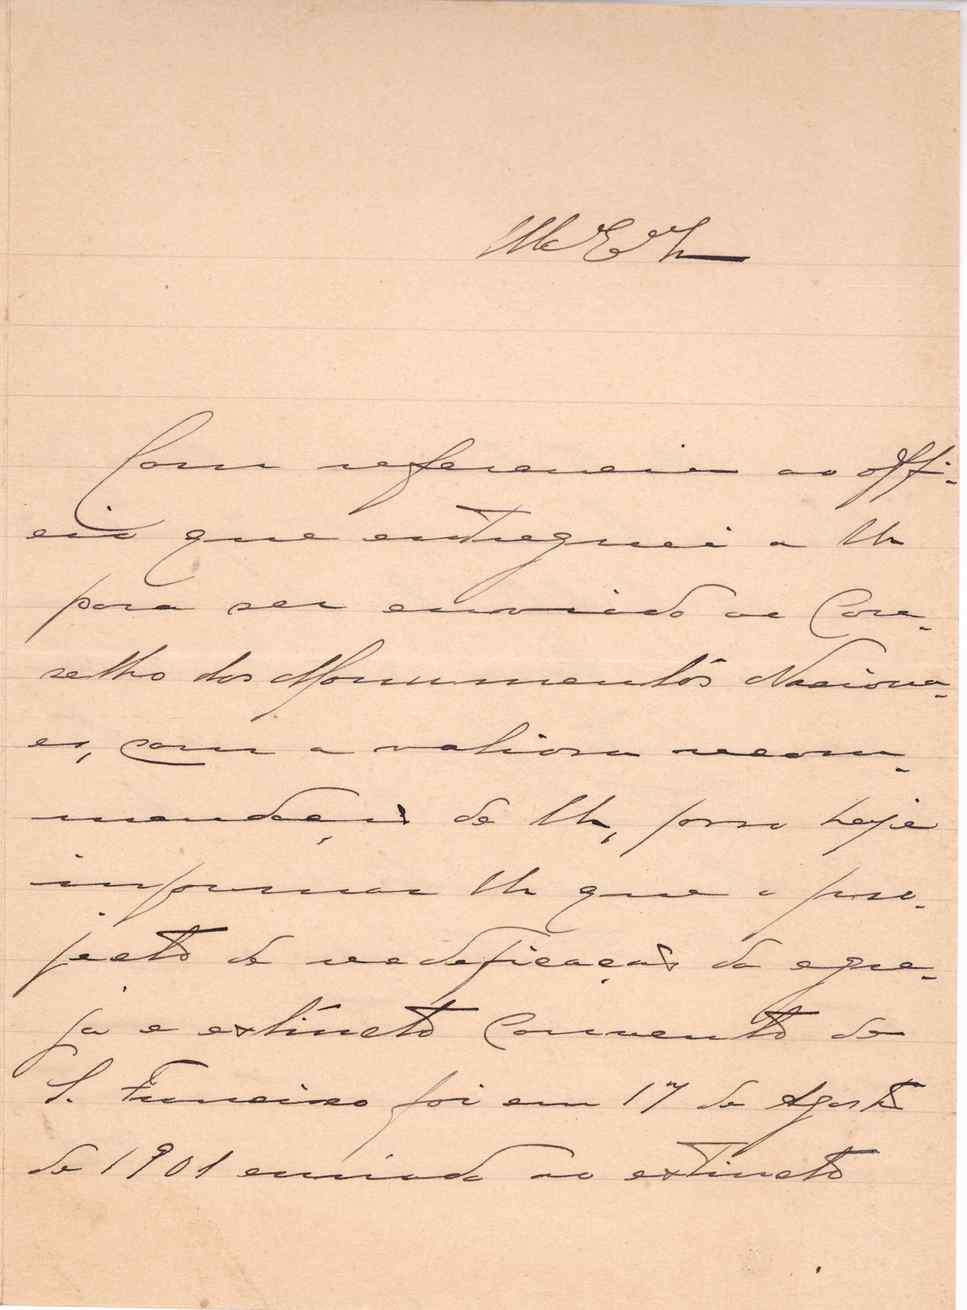 Com referencia ao offi-
cio que entreguei a VEx
para ser enviado ao Con-
selho dos Monumentos Naciona-
es, com a valiosa recom-
mendação de VEx, posso hoje
informar VEx que o pro-
jecto de reedificação da egre-
ja e extincto Convento de
S. Francisco foi em 17 de Agosto
de 1901 enviado ao extincto